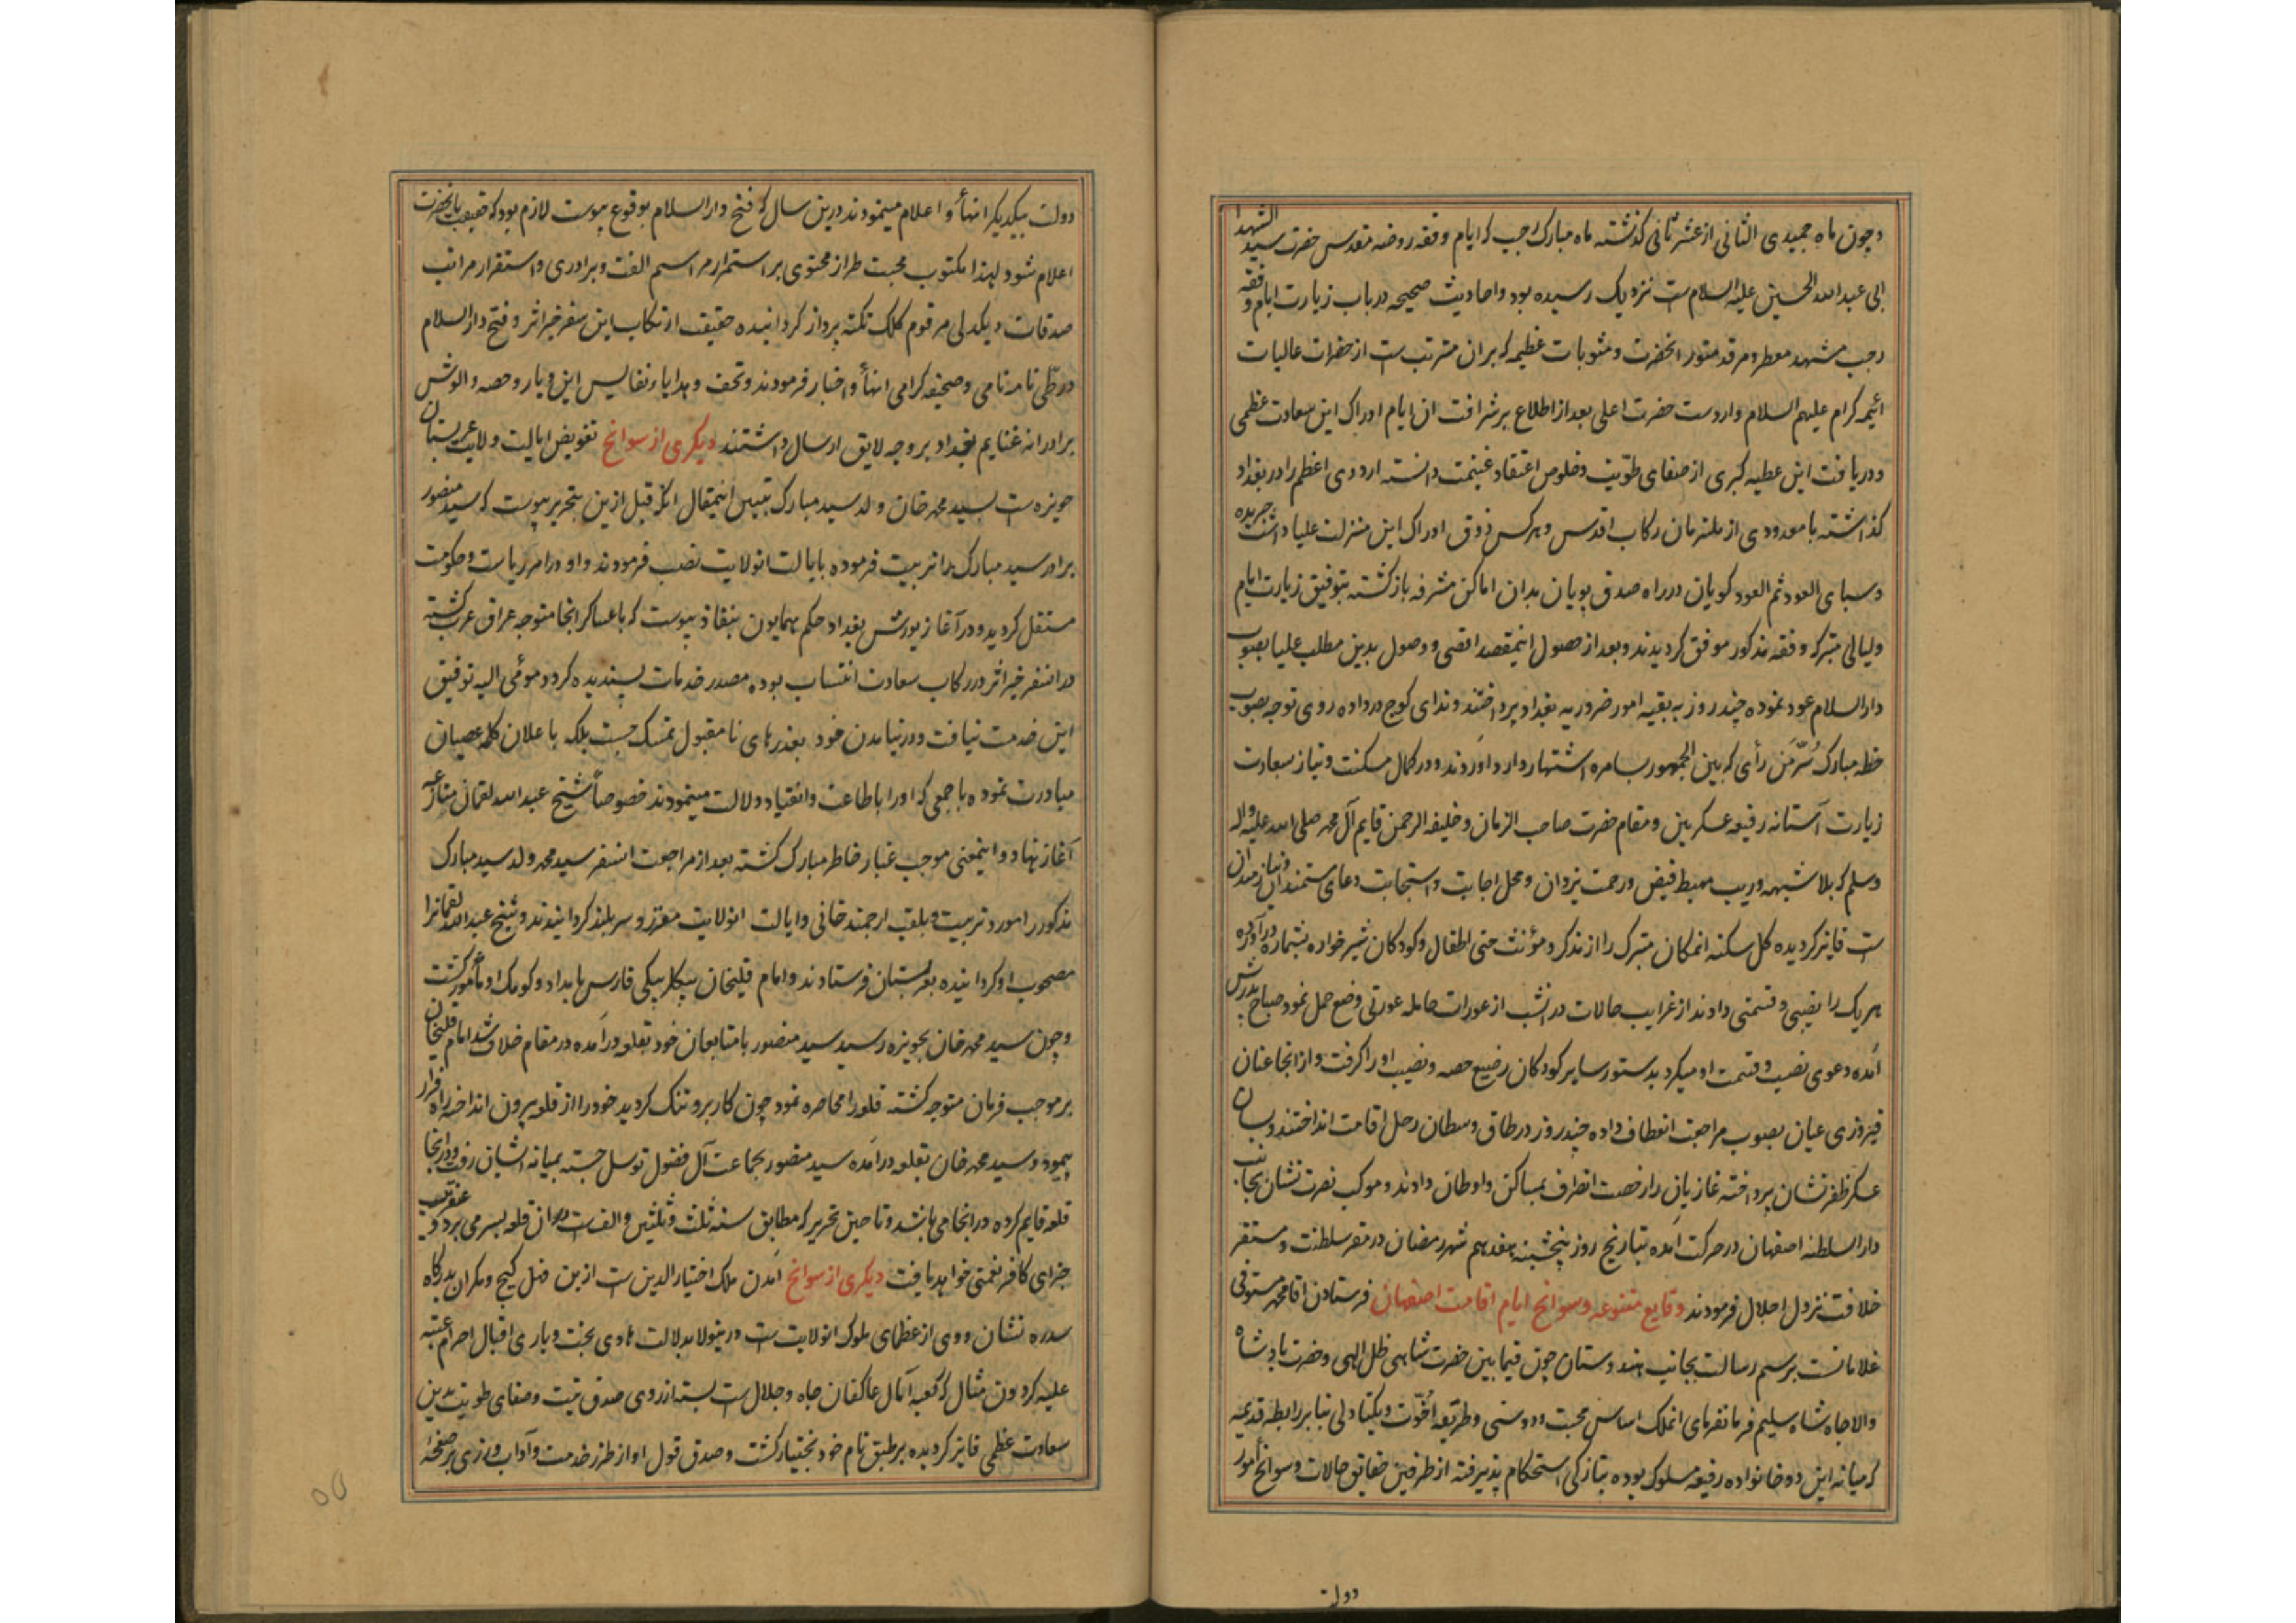 وچون ماه جمیدی الثانی از عشر ثانی گذشته ماه مبارک رجب که ایام وقفه روضه مقدس حضرت سید الشهدا
ابی عبدالله الحسین علیه السلام ست نزدیک رسیده بود و احادیث صحیحه در باب زیارت ایام وقفه
رجب مشهد معطر و مرقد منور انحضرت و مثوبات عظیمه که بران مترتب ست از حضرات عالیات
ائمه کرام علیهم السلام واردست حضرت اعلی بعد از اطلاع بر شرافت ان ایام ادراک این سعادت عظمی
و دریافت این عطیه کبری از صفای طویت و خلوص اعتقاد غنیمت دانسته اردوی اعظم را در بغداد
گذاشته با معدودی از ملتزمان رکاب اقدس و هرکس ذوق ادراک این منزلت علیا داشت جریده
و سبای العود ثم العود کویان در راه صدق پویان بدان اماکن مشرفه بازکشته بتوفیق زیارت ایام
و لیالی متبرکه وقفه مذکور موفق کردیدند و بعد از حصول اینمقصد اقصی و وصول بدین مطلب علیا بصوب
دارالسلام عود نموده چند روز به بقیه امور ضروریه بغداد پرداختند و ندای کوچ در داده روی توجه بصوب
خطه مبارک سُرّ مَن رأی که بین الجمهور بسامره اشتهار دارد آوردند و در کمال مسکنت و نیاز سعادت
زیارت آستانه رفیعه عسکریین و مقام حضرت صاحب الزمان و خلیفه الرحمن قایم آل محمد صلی الله علیه و اله
و سلم که بلا شبهه و ریب مهبط فیض و رحمت یزدان و محل اجابت و استجابت دعای مستمندان و نیازمندان
ست فایز کردیده کل سکنه انمکان متبرک را از مذکر و مؤنث حتی اطفال و کودکان شیرخواره بشماره درآورده
هریک را نصیبی و قسمتی دادند از غرایب حالات در انشب از عورات حامله عورتی وضع حمل نمود صباح پدرش
آمده دعوی نصیب و قسمت او میکرد بدستور سایر کودکان رضیع حصه و نصیب او را کرفت و از انجا عنان
فیروزی عیان بصوب مراجعت انعطاف داده چند روز در طاق وسطان رحل اقامت انداختند و بسان
عسکر ظفر نشان پرداخته غازیان را رخصت انصراف بمساکن و اوطان دادند و موکب نصرت نشان بجانب
دارالسلطنه اصفهان در حرکت آمده بتاریخ روز پنجشنبه هفدهم شهر رمضان در مقر سلطنت و مستقر
خلافت نزول اجلال فرمودند وقایع متنوعه و سوانح ایام اقامت اصفهان فرستادن اقا محمد مستوفی
غلامانست برسم رسالت بجانب هندوستان چون فیمابین حضرت شاهی ظل الهی و حضرت پادشاه
والاجاه شاه سلیم فرمانفرمای انملک اساس محبت و دوستی و طریقه اخوّت و یکتادلی بنابر رابطه قدیمه
که میانه این دو خانواده رفیعه مسلوک بوده بتازکی استحکام پذیرفته از طرفین حقایق حالات و سوانح امور
دولت
دولت بیکدیکر انهأ و اعلام مینمودند درین سال که فتح دارالسلام بوقوع پیوست لازم بود که حقیقت بانحضرت
اعلام شود لهذا مکتوب محبت طراز محتوی بر استمرار مراسم الفت و برادری و استقرار مراتب
صدقات و یکدلی مرقوم کلک نکته پرداز کردانیده حقیقت ارتکاب این سفر خیر اثر و فتح دارالسلام
در طی نامه نامی و صحیفه کرامی انهأ و اخبار فرمودند و تحف و هدایا و نفایس این دیار و حصه و الوش
برادرانه غنایم بغداد بر وجه لایق ارسال داشتند دیکری از سوانح تفویض ایالت ولایت عربستان
حویزه ست بسید محمد خان ولد سید مبارک تبیین اینمقال انکه قبل ازین بتحریر پیوست که سید منصور
برادر سید مبارک را تربیت فرموده بایالت انولایت نصب فرمودند و او در امر ریاست و حکومت
مستقل کردید و در آغاز یورش بغداد حکم همایون بنفاذ پیوست که با عساکر انجا متوجه عراق عرب کشته
در انسفر خیر اثر در رکاب سعادت انتساب بوده مصدر خدمات پسندیده کردد و مومی الیه توفیق
این خدمت نیافت و در نیامدن خود بعذرهای نامقبول تمسک جست بلکه باعلان کلمه عصیان
مبادرت نموده با جمعی که او را باطاعت و انقیاد دلالت مینمودند خصوصاً شیخ عبدالله لقمان منازعه
آغاز نهاد و اینمعنی موجب غبار خاطر مبارک کشته بعد از مراجعت انسفر سید محمد ولد سید مبارک
مذکور را مورد تربیت و بلقب ارجمند خانی و ایالت انولایت معزز و سربلند کردانیدند و شیخ عبدالله لقمانرا
مصحوب او کردانیده بعربستان فرستادند و امام قلیخان بیکلربیکی فارس بامداد و کومک او مأمور کشت
و چون سید محمد خان بحویزه رسید سید منصور با متابعان خود بقلعه درآمده در مقام خلاف شد امام قلیخان
بر موجب فرمان متوجه کشته قلعه را محاصره نمود چون کار برو تنک کردید خود را از قلعه بیرون انداخته راه فرار
پیمود و سید محمد خان بقلعه درآمده سید منصور بجماعت آل فضول توسل جسته بمیانه ایشان رفت و در انجا
قلعه قایم کرده در انجا می باشد و تا حین تحریر که مطابق سنه ثلث و ثلثین و الف ست در ان قلعه بسر می برد و عنقریب
جزای کافر نعمتی خواهد یافت دیکری از سوانح آمدن ملک اختیارالدین ست ازین فبل کیج و مکران بدرکاه
سدره نشان و وی از عظمای ملوک انولایت ست درینولا بدلالت هادی بخت و یاری اقبال احرام عتبه
علیه کردون مثال که کعبه آمال عاکفان جاه و جلال ست بسته از روی صدق نیت و صفای طویت بدین
سعادت عظمی فایز کردیده بر طبق نام خود بختیار کشت و صدق قول او از طرز خدمت و آداب ورزی بر صفحه